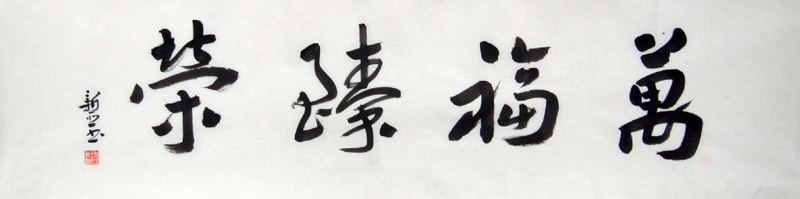 萬福臻榮